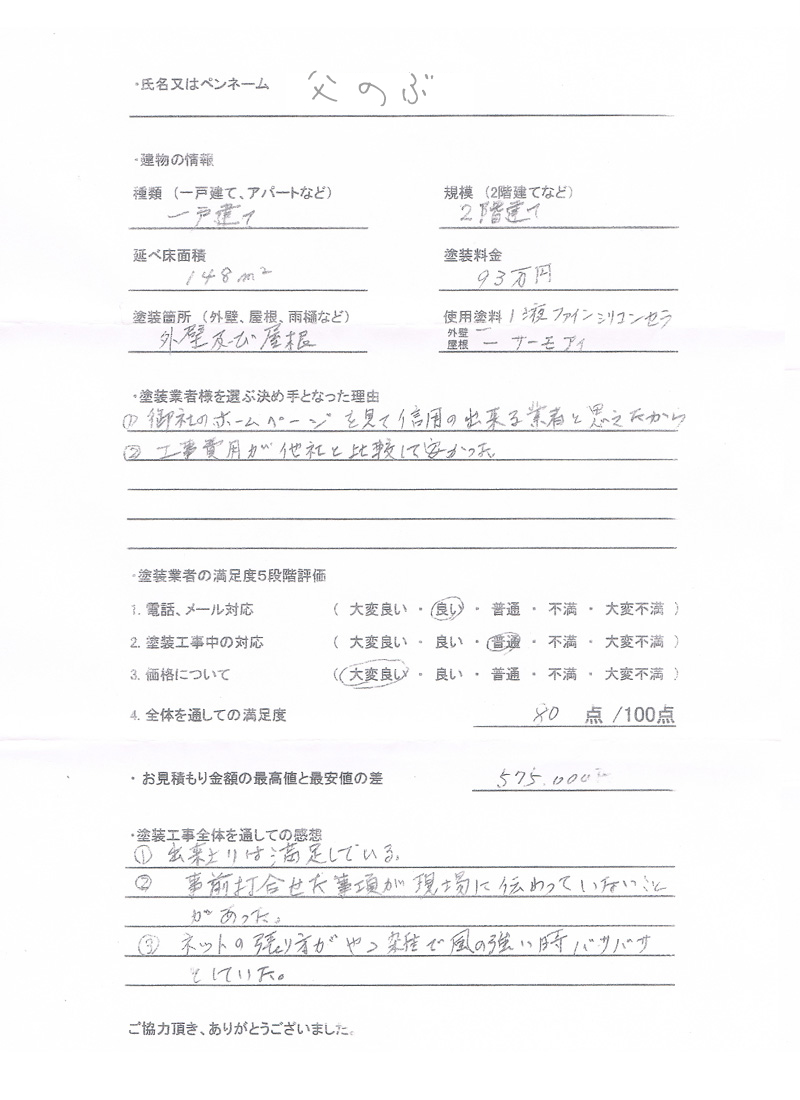 ・氏名又はペンネーム 父のぶ
・建物の情報
種類（一戸建て、アパートなど） 規模（2階建てなど）
一戸建て 2階建て
延べ床面積 塗装料金
148m² 93万円
塗装箇所（外壁、屋根、雨樋など） 使用塗料 1液ファインシリコンセラ
外壁及び屋根 外壁 ー
屋根 ー サーモアイ
・塗装業者様を選ぶ決め手となった理由
① 御社のホームページを見て信用の出来る業者と思えたから
② 工事費用が他社と比較して安かった
・塗装業者の満足度5段階評価
1. 電話、メール対応 （ 大変良い ・ 良い ・ 普通 ・ 不満 ・ 大変不満 ）
2. 塗装工事中の対応 （ 大変良い ・ 良い ・ 普通 ・ 不満 ・ 大変不満 ）
3. 価格について （ 大変良い ・ 良い ・ 普通 ・ 不満 ・ 大変不満 ）
4. 全体を通しての満足度 80 点 /100点
・お見積もり金額の最高値と最安値の差 575.000円
・塗装工事全体を通しての感想
① 出来上りは満足している。
② 事前打合せた事項が現場に伝わっていないこと
があった。
③ ネットの張り方がやゝ雑で風の強い時バサバサ
としていた。
ご協力頂き、ありがとうございました。